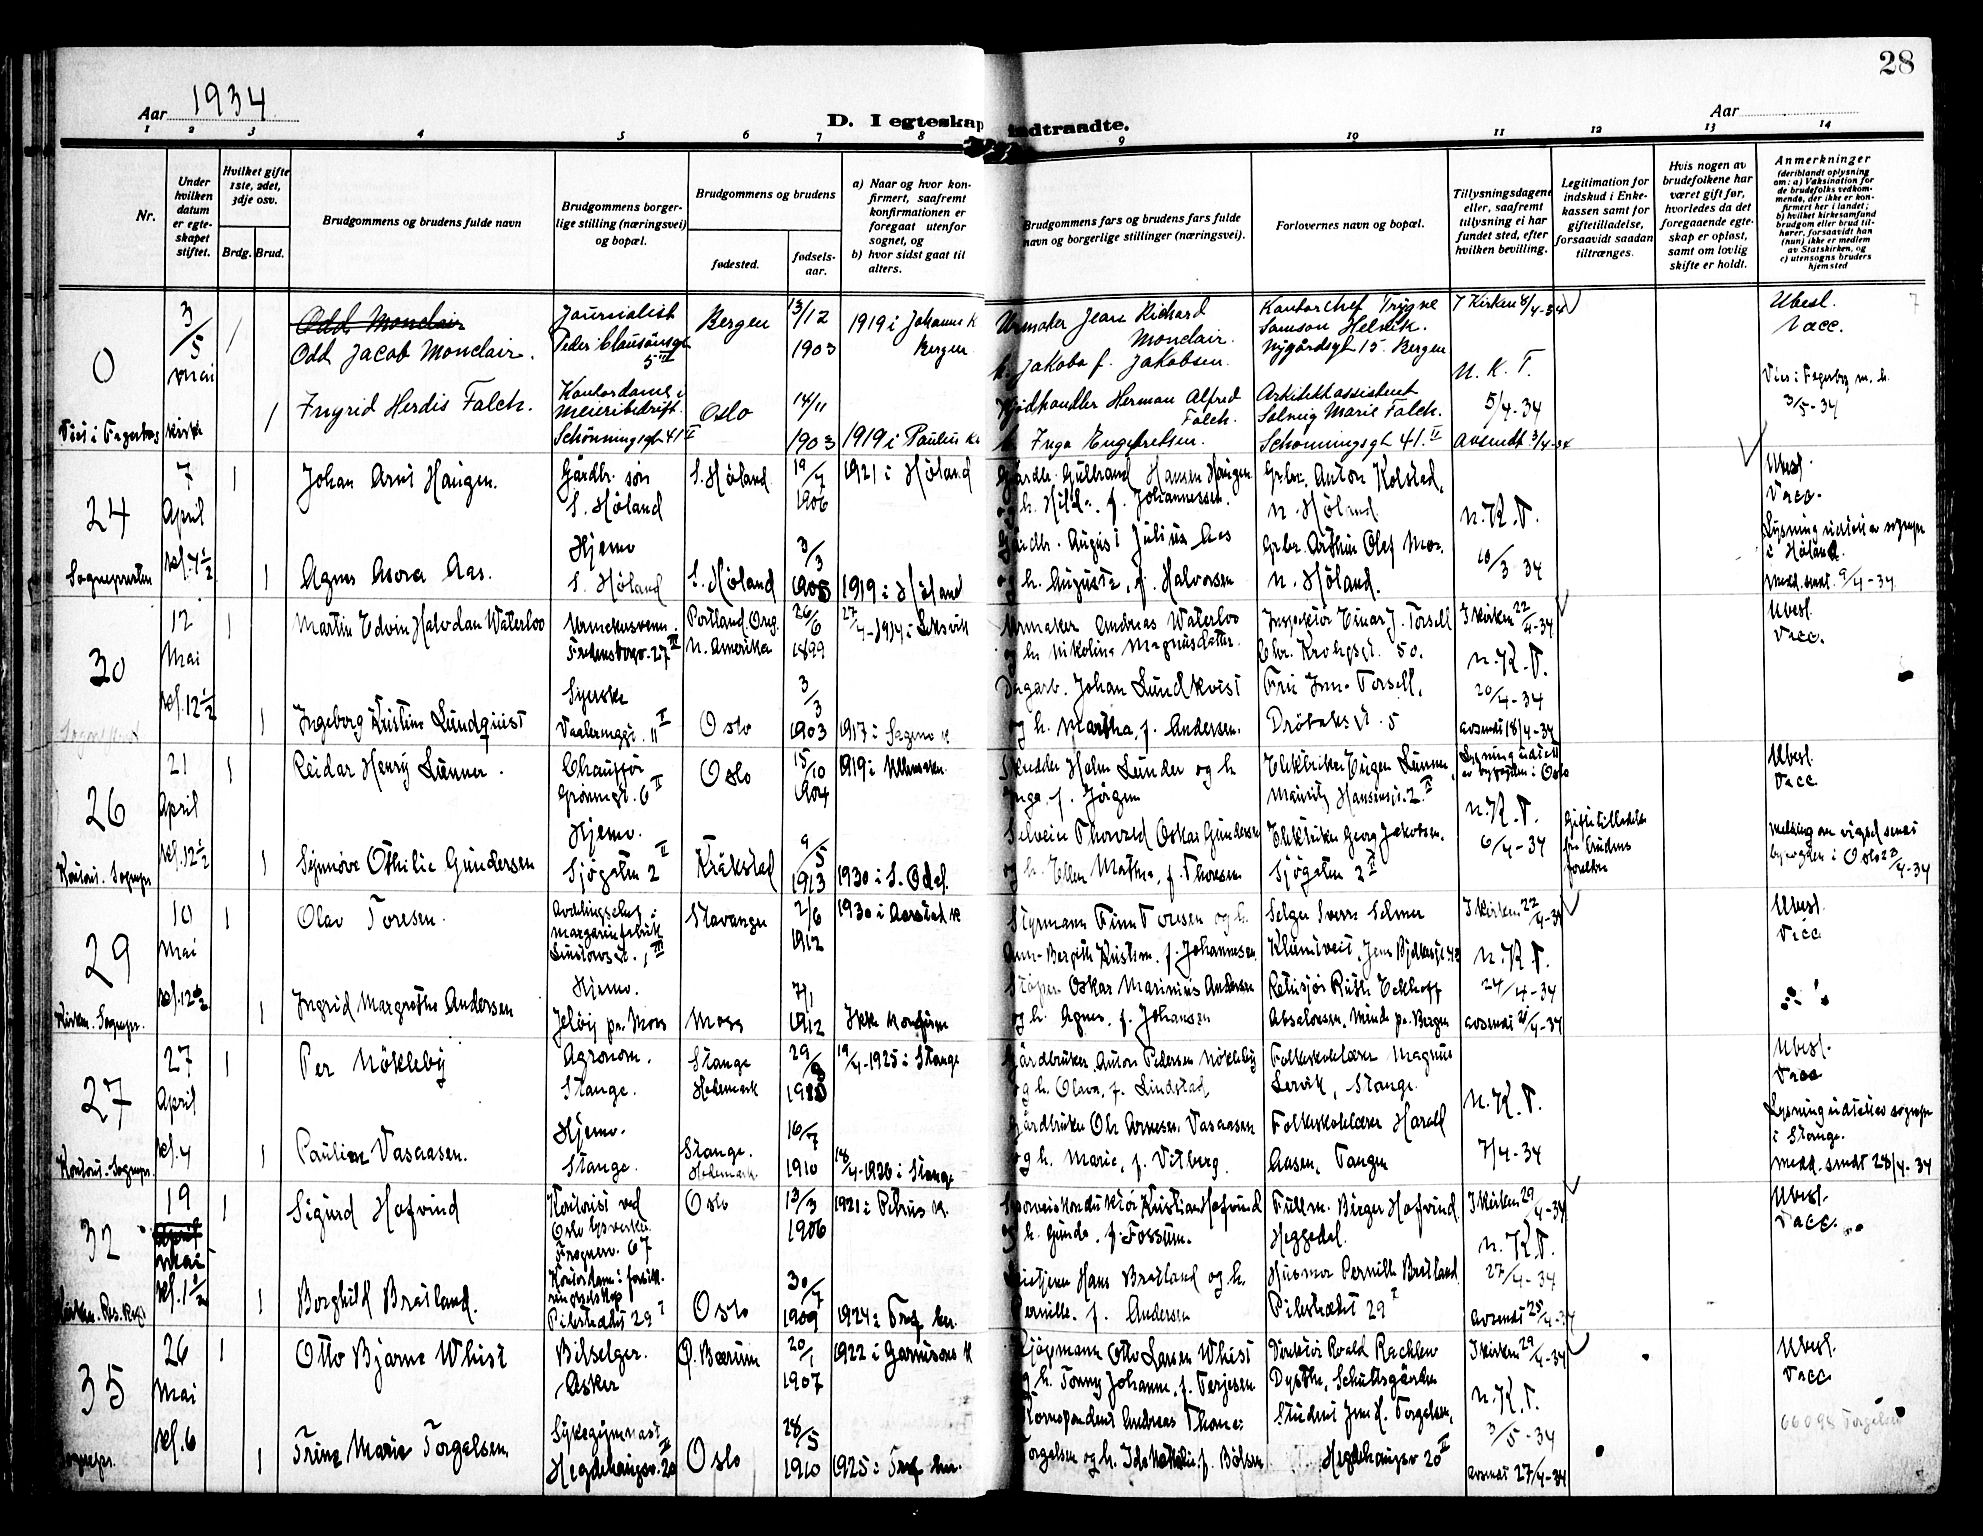 28
Aar 1934
D. I egteskap indtraadte.
Aar
1 2 3 4 5 6 7 8 9 10 11 12 13 14
Nr.
Under hvilken datum er egteskapet stiftet.
Hvilket gifte 1ste, 2det, 3dje osv.
Brdg. Brud.
Brudgommens og brudens fulde navn
Brudgommens borgerlige stilling (næringsvei) og bopæl.
Brudgommens og brudens
fødested.
fødselsaar.
a) Naar og hvor konfirmert, saafremt konfirmationen er foregaat utenfor sognet, og
b) hvor sidst gaat til alters.
Brudgommens fars og brudens fars fulde navn og borgerlige stillinger (næringsvei).
Forlovernes navn og bopæl.
Tillysningsdagene eller, saafremt tillysning ei har fundet sted, efter hvilken bevilling.
Legitimation for indskud i Enkekassen samt for giftetilladelse, forsaavidt saadan tiltrænges.
Hvis nogen av brudefolkene har været gift før, hvorledes da det foregaaende egteskap er opløst, samt om lovlig skifte er holdt.
Anmerkninger
(deriblandt oplysning om: a) Vaksination for de brudefolks vedkommende, der ikke er konfirmert her i landet;
b) hvilket kirkesamfund brudgom eller brud tilhører, forsaavidt han (hun) ikke er medlem av Statskirken, og
c) utensogns bruders hjemsted
0
3/5 mai
1
Odd Monclair
Odd Jacob Monclair.
Journalist
Peder Claussønsgt 5 III
Bergen
13/12 1903
1919 i Johannes K Bergen
Urmaker Jean Richard Monclair.
h. Jakoba f. Jakobsen.
Kontorchef Trygve Samson Helvik.
Nygårdsgt 15. Bergen
I Kirken 8/4-34
N. K. T.
Ubesl.
Vacc.
Viet i Fagerborg kirke
1
Ingrid Herdis Falch.
Kontordame i Meieribedrift.
Schönningsgt 41 II
Oslo
14/11 1903
1919 i Paulus K.
Kjødhandler Herman Alfred Falch.
h. Inga Engebretsen.
Arkitektassistent Solveig Marie Falch.
Schønningsgt 41. II
5/4-34
avsendt 3/4-34
Viet i Fagerborg m. k. 3/5-34
24
7 April
kl. 4 1/2
1
Johan Arnt Haugen.
Gårdbr. søn
S. Høland
S. Høland
19/7 1906
1921 i Høland
Gårdbr. Gulbrand Hansen Haugen
h. Hilda f. Johannessen.
Grbr. Anton Kolstad,
N. Høland
N.K.T.
Ubesl.
Vacc.
Sognepresten
1
Agnes Asora Aas.
Hjemv
S. Høland
S. Høland
3/3 1905
1919 i Høland
Gårdbr. August Julius Aas
og h. Augusta, f. Halvorsen
Grbr. Arthur Olef Mor.
N. Høland.
10/3-34
Lysning utstedt av sognepr i Høland.
medd. sendt. 9/4-34.
30
12 Mai
kl. 12 1/2
1
Martin Edvin Halvdan Waterloo
Urmakersvenn.
Fredensborgv. 27 III
Portland. Oreg. N. Amerika
26/6 1899
27/4-1914 i Leksvik
Urmaker Andreas Waterloo
og h. Nikolina Magnusdatter.
Inspektør Einar J. Torsell
Chr. Krohgsgt. 50.
I kirken 22/4-34
N.K.T.
Ubesl.
Vacc.
1
Ingeborg Kristine Lundquist
Syerske
Vaalerenggt. 11 II
Oslo
3/3 1903
1917 i Sagene K
Dagarb. Johan Lundkvist
og h. Martha, f. Andersen.
Fru Inn. Torsell,
Drøbaks gt. 5
20/4-34
avsendt 18/4-34
26
21 April
kl. 12 1/2
1
Reidar Henry Lunner.
Chauffør
Grønnegt. 6 II
Oslo
15/10 1904
1919 i Ullensaker.
Skredder Halm Lunder og h.
Inga, f. Jörgen
Elektriker Eugen Lunner,
Mauritz Hansensgt. 2. II
Lysning utstedt av byfogden i Oslo
N.K.T.
Ubesl.
Vacc
Kontoret. Sognepr
1
Synnøve Othilie Gundersen
Hjemv.
Sjøgaten 2 II
Kråkstad
9/5 1913
1930 i S. Odal.
Thorvald Oskar Gundersen
og h. Ellen Mathea, f. Thoresen
Elektriker Georg Jakobsen.
Sjøgaten 2 II
6/4-34
Giftetilladelse fra brudens foreldre
Melding om vigsel sendt byfogden i Oslo 23/4-34
29
10 Mai
kl. 12 1/2
1
Olav Toresen.
Avdelingschef i margarinfabrik
Linstows gt. 1 III
Stavanger
2/6 1912
1930 i Aarstad K
Styrmann Finn Toresen og h.
Ann-Bergith Kristine, f. Johannesen.
Selger Sverre Selmer
I kirken 22/4-34
N.K.T.
Ubesl.
Vacc
Kirken. Sognepr.
1
Ingrid Margrethe Andersen
Hjemv.
Jeløy pr. Moss
Moss
7/1 1912
Ikke konfirm
Støper Oskar Marinius Andersen
og h. Agnes, f. Johansen
Retusjør Ruth Eckhoff
Absalonsen, Minde pr. Bergen
24/4-34
avsendt 21/4-34
27
27 April
kl. 4
1
Per Nökleby
Agronom.
Stange.
Stange Hedemark
29/8
19/4-1925 i Stange
Gårdbruker Anton Pedersen Nökleby
og h. Olava, f. Lindstad,
Folkeskolelærer Magnus Lervik, Stange.
N.K.T.
Ubesl.
Vacc
Kontoret. Sognepr.
1
Pauline Vasaasen.
Hjemv.
Stange.
Stange. Hedemark.
16/7 1910
18/4-1926 i Stange
Gårdbruker Ole Arnesen Vasaasen
og h. Marie, f. Vitberg.
Folkeskolelærer Harald Aasen, Tangen
7/4-34
Lysning utstedt av sognepr i Stange.
Medd. sendt 28/4-34
32
19 April Mai
kl. 1 1/2
1
Sigurd Hofvind
Kontorist ved Oslo lysverker
Frognerv. 67
Oslo
13/3 1906
1921 i Petrus K.
Sporveiskonduktør Kristian Hofvind
og h. Gunda, f. Fossum.
Fullm. Birger Hofvind
Heggedal.
I kirken 29/4-34
N.K.T.
Ubesl.
Vacc.
Kirken. Res. Kap
1
Borghild Bratland.
Kontordame i forsikringsselskap
Pilestredet 29 I
Oslo
30/7 1909
1924 i Tref. ker.
Hans Bratland og h.
Pernille, f. Andersen
Husmor Pernille Bratland
Pilestredet 29 I
27/4-34
avsendt 25/4-34
35
26 Mai
kl. 6
1
Otto Bjarne Whist
Bilselger.
Asker
Ø. Bærum
20/1 1907
1922 i Garnisons K
Kjøpmann Otto Larsen Whist
og h. Tonny Johanne, f. Terjesen
Direktør Roald Rachlew
Dysthe,
I kirken 29/4-34
N.K.T.
Ubesl.
Vacc
Sognepr.
1
Trine Marie Torgelsen
Sykegymnast
Hegdehaugsv. 20 II
Oslo
28/5 1910
1925 i Tref. ker.
Korrespondent Andreas Thomas
Torgelsen og h. Ida Mathilie f. Bølsen
Student Jens H. Torgelsen,
Hegdehaugsv 20 II
3/5-34
avsendt 27/4-34
Torgelsen